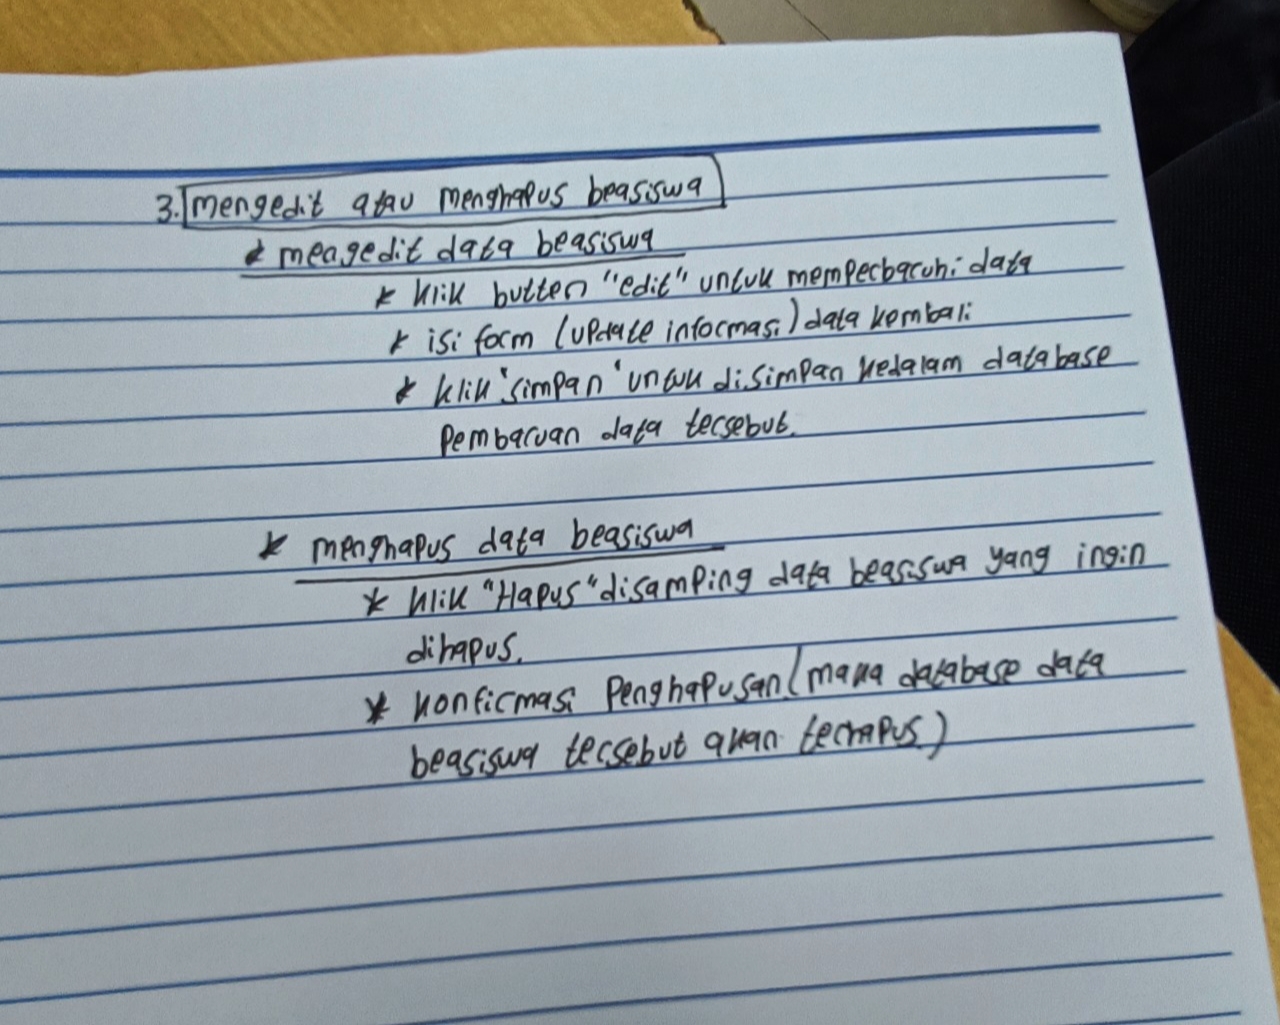 3. mengedit atau menghapus beasiswa
* mengedit data beasiswa
* klik button "edit" untuk memperbaruhi data
* isi form (update informasi) data kembali
* klik 'simpan' untuk disimpan kedalam database
pembaruan data tersebut.
* menghapus data beasiswa
* klik "Hapus" disamping data beasiswa yang ingin
dihapus.
* konfirmasi penghapusan (maka database data
beasiswa tersebut akan terhapus)